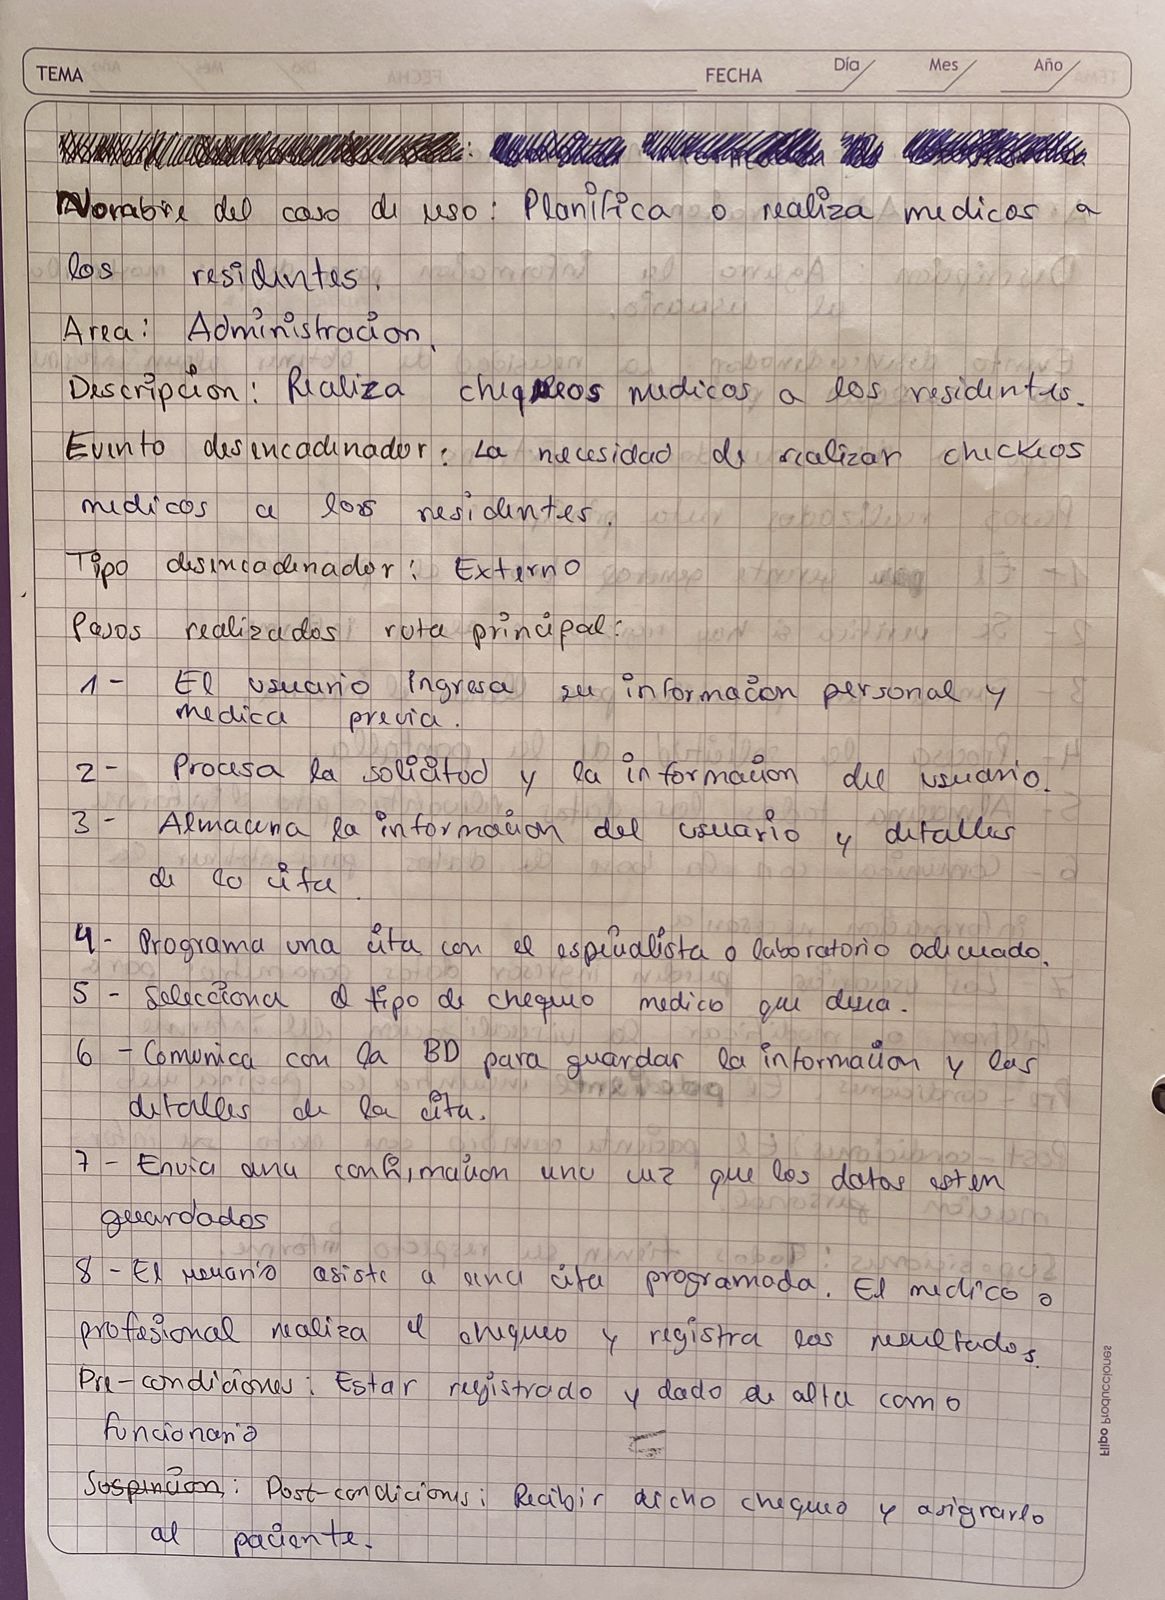 TEMA FECHA Día Mes Año
Nombre del caso de uso: Planifica o realiza medicos a
los residentes.
Area: Administracion.
Descripcion: Realiza chequeos medicos a los residentes.
Evento desencadenador: La necesidad de realizar checkeos
medicos a los residentes.
Tipo desencadenador: Externo
Pasos realizados ruta principal:
1- El usuario ingresa su informacion personal y
medica previa.
2- Procesa la solicitud y la informacion del usuario.
3- Almacena la informacion del usuario y detalles
de la cita
4- Programa una cita con el especialista o laboratorio adecuado.
5- Selecciona el tipo de chequeo medico que desea.
6- Comunica con la BD para guardar la informacion y los
detalles de la cita.
7- Envia una confirmacion una vez que los datos esten
guardados
8- El usuario asiste a una cita programada. El medico o
profesional realiza el chequeo y registra los resultados.
Pre-condiciones: Estar registrado y dado de alta como
funcionario
Suspencion: Post-condiciones: Recibir dicho chequeo y asignarlo
al paciente.
Flipo Producciones